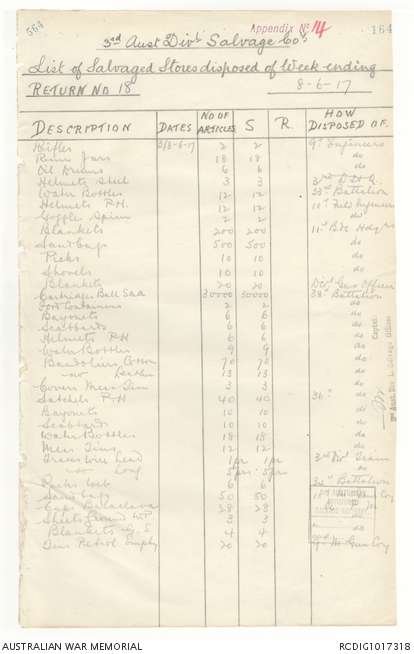 564
Appendix No 14
164
3rd Aust Divl Salvage Coy
List of Salvaged Stores disposed of Week ending
RETURN NO 18 8-6-17
DESCRIPTION DATES NO OF ARTICLES S R. HOW DISPOSED OF.
Rifles 2 2 9th Engineers
Rum Jars 18 18 do
Oil Drums 6 6 do
Helmets Steel 3 3
Water Bottles 12 12 Battalion
Helmets P.H. 12 12 10th Field Engineers
Goggles Spicer 2 2 do
Blankets 200 200 11th Bde Hdqrs
Sand bags 500 500 do
Picks 10 10 do
Shovels 10 10 do
Blankets 20 20 Div Gas Officer
Cartridges Ball SAA 38th Battalion
Containers 2 2 do
Bayonets 6 6 do
Scabbards 6 6 do
Helmets P.H 6 6 do
Water Bottles 9 9 do
Bandoliers Cotton 70 70 do
Leather 13 13 do
Covers Mess Tin 3 3 do
Satchels P.H 40 40 36th do
Bayonets 10 10 do
Scabbards 10 10 do
Water Bottles 18 18 do
Mess Tins 12 12 do
Lead 1pr 1pr 3rd Div Train
Long 5prs 5prs do
Packs Web 6 6 Battalion
Sand bags 50 50
Caps Balaclava 28 28
Sheets Ground W.P 3 3 do
Blankets G.S 4 4 do
Tins Petrol empty 20 20 M Gun Coy
Captain
AUSTRALIAN WAR MEMORIAL
RCDIG1017318